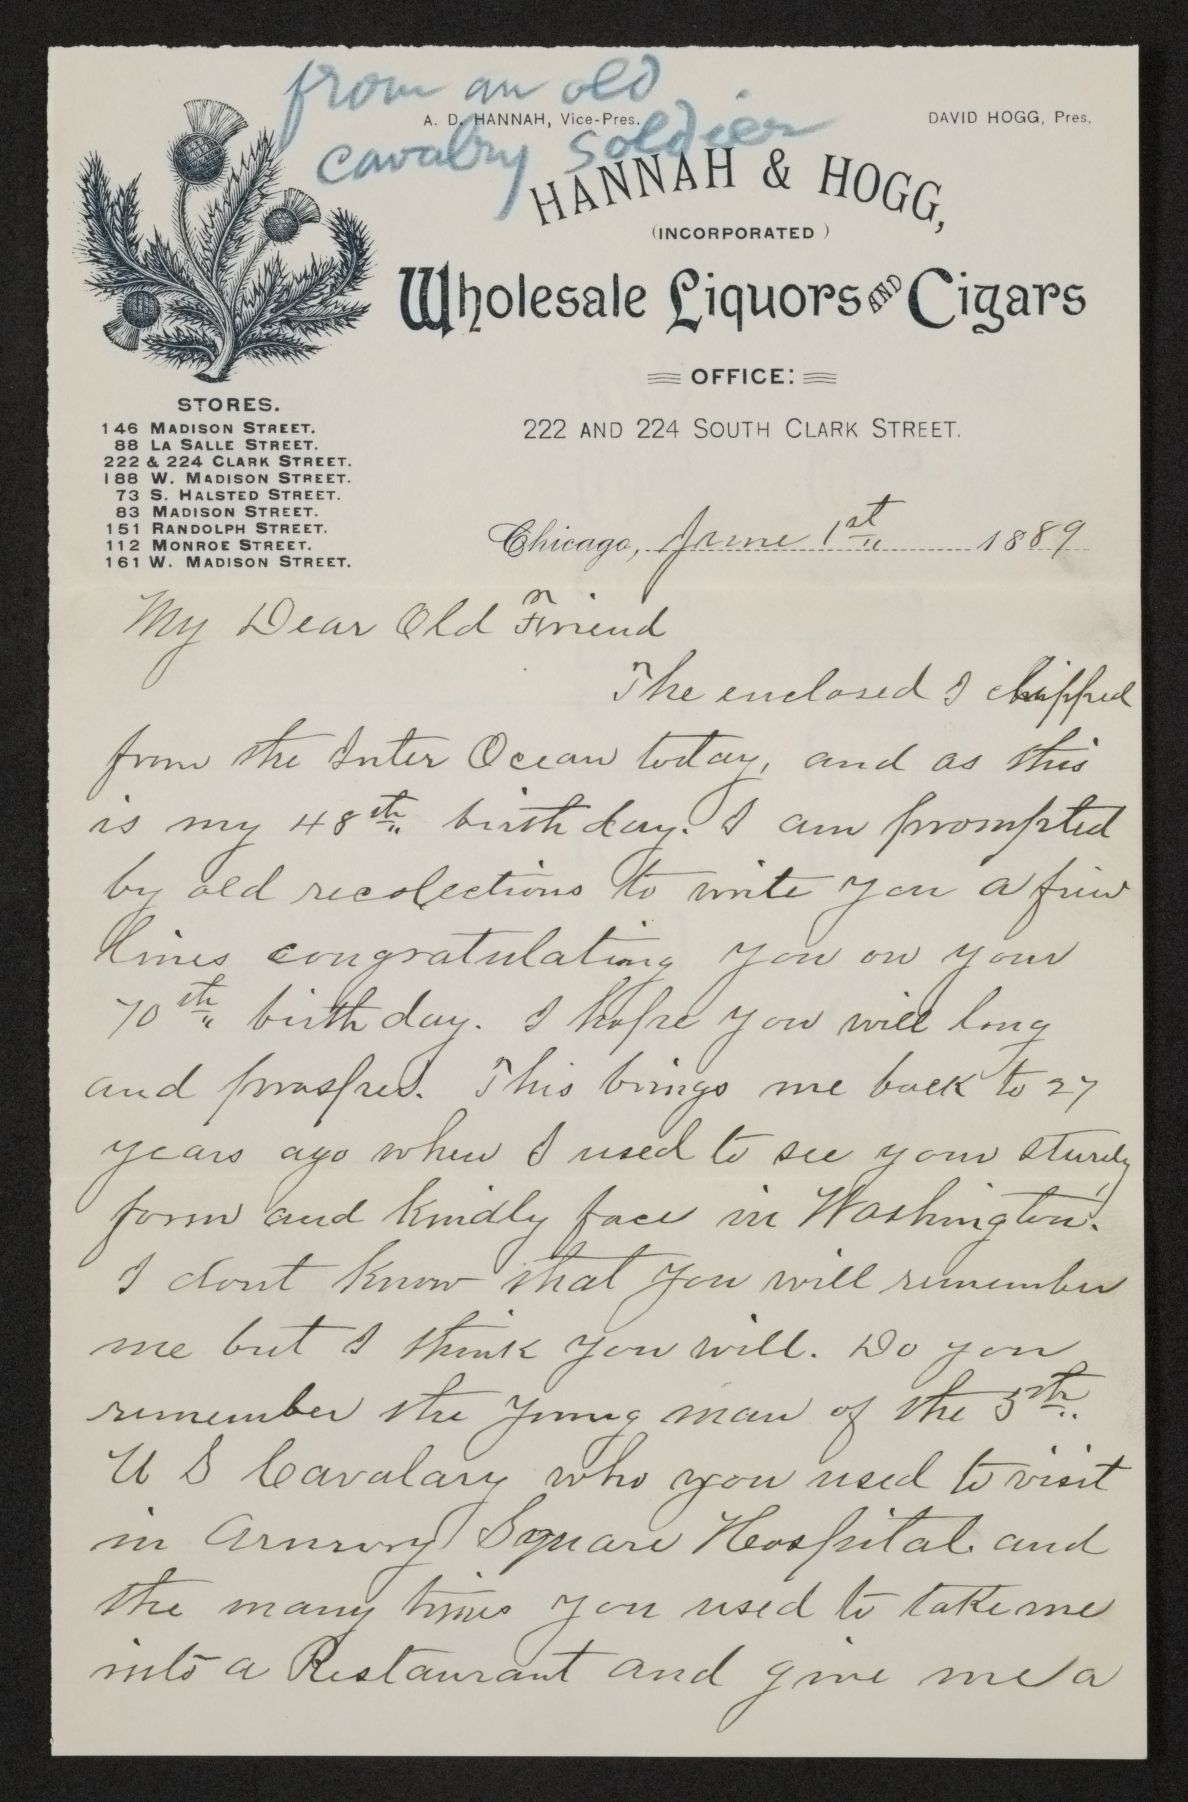 from an old
cavalry soldier
A. D. HANNAH, Vice-Pres.
DAVID HOGG, Pres.
HANNAH & HOGG,
(INCORPORATED)
Wholesale Liquors AND Cigars
OFFICE:
222 AND 224 SOUTH CLARK STREET.
STORES.
146 MADISON STREET.
88 LA SALLE STREET.
222 & 224 CLARK STREET.
188 W. MADISON STREET.
73 S. HALSTED STREET.
83 MADISON STREET.
151 RANDOLPH STREET.
112 MONROE STREET.
161 W. MADISON STREET.
Chicago, June 1st 1889
My Dear Old Friend
The enclosed I clipped
from the Inter Ocean today, and as this
is my 48th birthday. I am prompted
by old recolections to write you a few
lines congratulating you on your
70th birthday. I hope you will long
and prosper. This brings me back to 27
years ago when I used to see your sturdy
form and kindly face in Washington.
I dont know that you will remember
me but I think you will. Do you
remember the young man of the 5th
U S Cavalary who you used to visit
in Armory Square Hospital and
the many times you used to take me
into a Restaurant and give me a